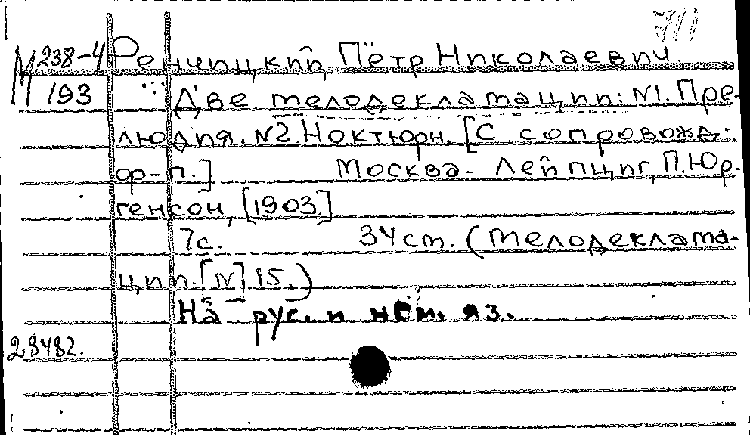 М 238-4
193
Ренчицкий, Пётр Николаевич
Две мелодекламации: №1. Пре-
людия. №2. Ноктюрн. [С сопровожд.
ф-п.] Москва - Лейпциг, П. Юр-
генсон, [1903.]
7с. 34 cm. (Мелодеклама-
ции. [№] 15.)
На рус. и нем. яз.
28482.